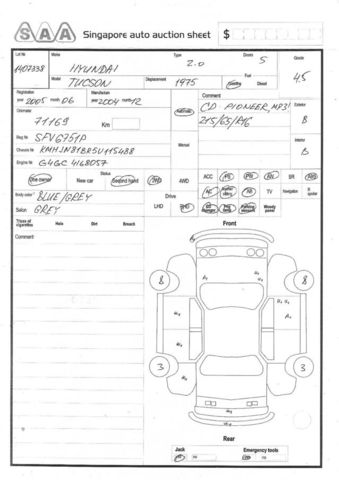 SAA Singapore auto auction sheet $
Lot № Make Type Doors Grade
1407338 HYUNDAI 2.0 5 4.5
Model Displacement Fuel
TUCSON 1975 Gasoline Diesel
Registration Manufacture
year 2005 month 06 year 2004 month 12
Comment Exterior
CD PIONEER, MP3! B
215/65/R16
Odometer
71169 Km
Automatic
Manual
Interior
B
Reg №
SFV6751P
Chassis №
KMHJN81BR5U115488
Engine №
G4GC 4168057
Status
One owner New car Second hand 2WD 4WD
ACC PS PW SR ABS
TV Navigation R spoiler
Body color
BLUE/GREY
Salon GREY
Drive
LHD RHD
Woody panel
Traces of cigarettes Hole Dirt Breach
Front
Comment
8 8
3 3
Rear
Jack Emergency tools
no no